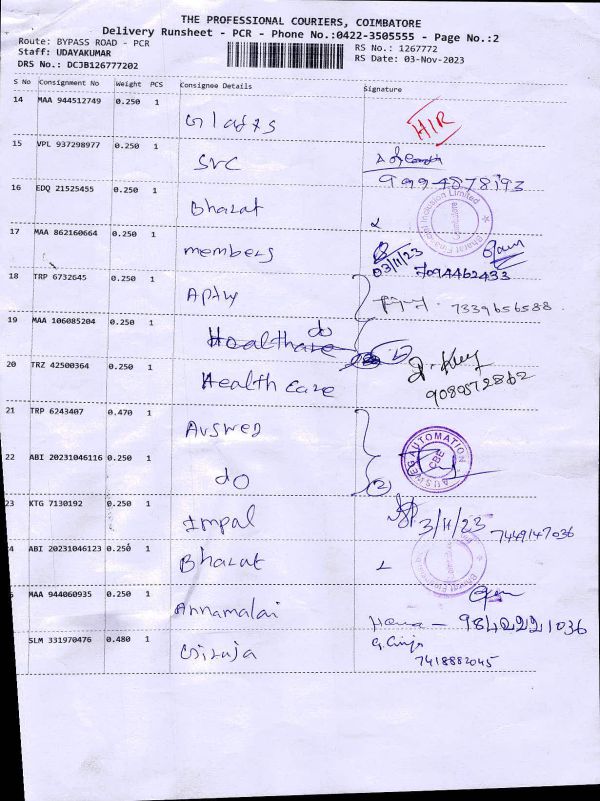 THE PROFESSIONAL COURIERS, COIMBATORE
Delivery Runsheet - PCR - Phone No.:0422-3505555 - Page No.:2
Route: BYPASS ROAD - PCR
RS No.: 1267772
Staff: UDAYAKUMAR
RS Date: 03-Nov-2023
DRS No.: DCJB126777202
S No Consignment No Weight PCS Consignee Details Signature
14 MAA 944512749 0.250 1
HIR
15 VPL 937298977 0.250 1 SVC
9994878193
16 EDQ 21525455 0.250 1 Bharat
17 MAA 862160664 0.250 1 members 03/11/23 7094462433
18 TRP 6732645 0.250 1 7339656588
19 MAA 106085204 0.250 1 do
20 TRZ 42500364 0.250 1 Health care
9089572862
21 TRP 6243407 0.470 1
AUSWEG AUTOMATION CBE
22 ABI 20231046116 0.250 1 do 2
23 KTG 7130192 0.250 1 Impal 3/11/23 7449147036
ABI 20231046123 0.250 1 Bharat
MAA 944060935 0.250 1 Annamalai
9842221036
SLM 331970476 0.480 1 Girija
7418882045